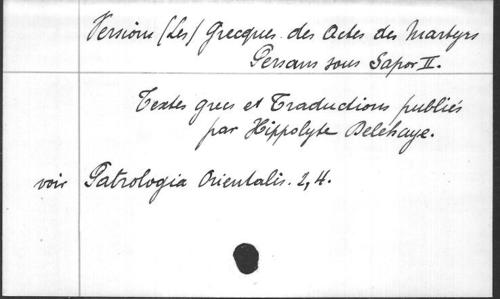 Versions (Les) Grecques des Actes des Martyrs
Persans sous Sapor II.
Textes grecs et Traductions publiés
par Hippolyte Delehaye.
voir Patrologia Orientalis. 2,4.